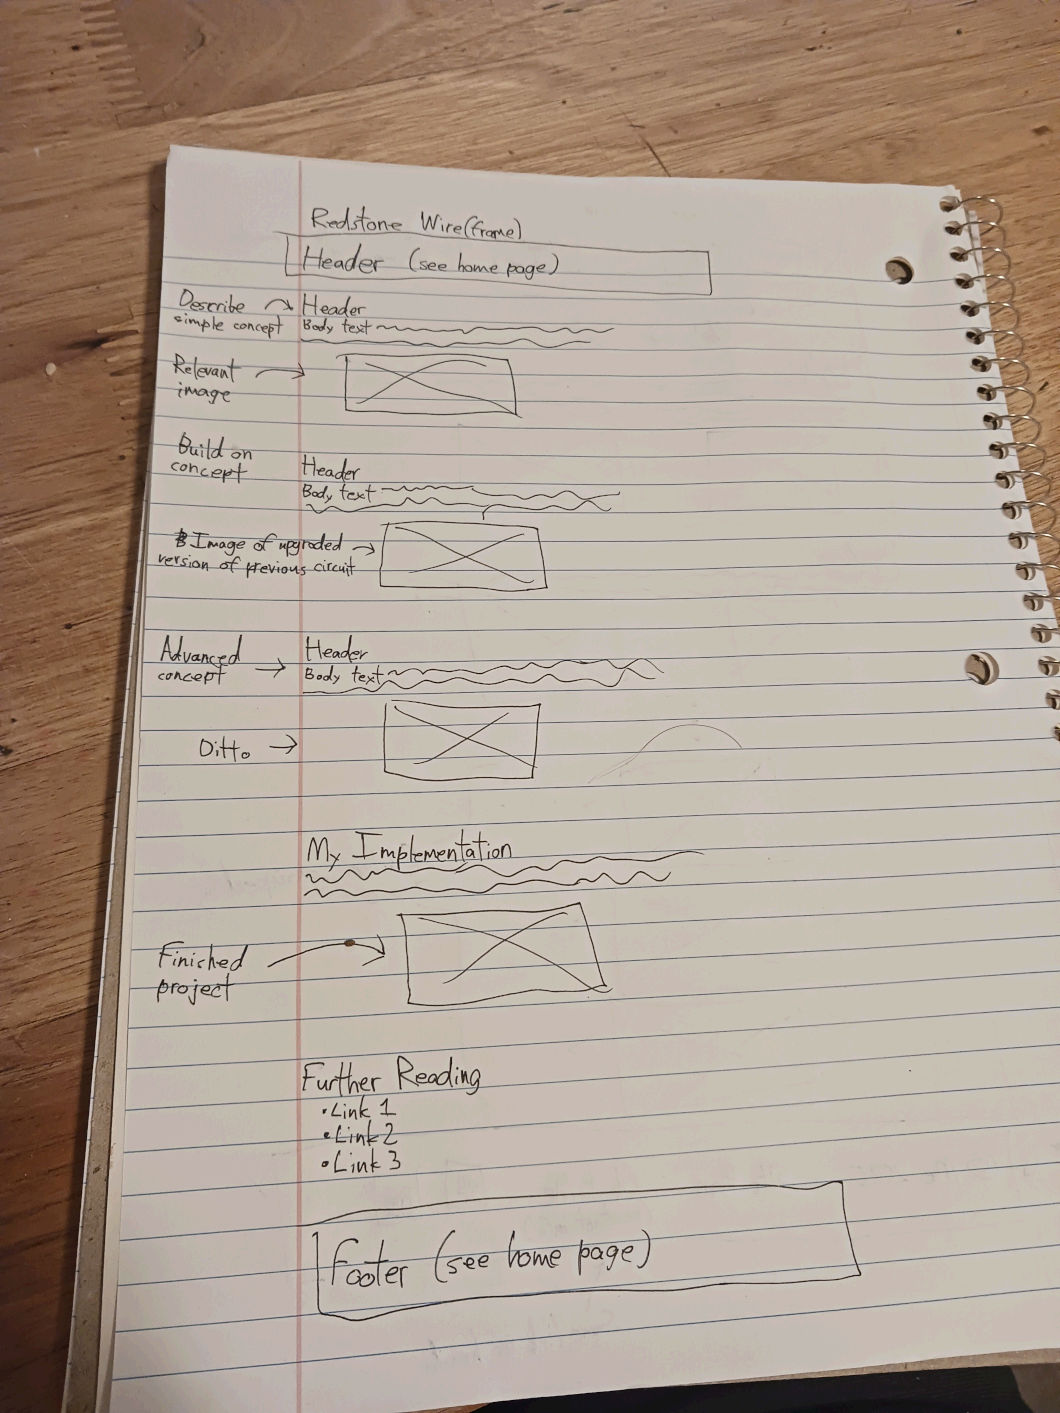 Redstone Wire(frame)
Header (see home page)
Describe
simple concept
Header
Body text
Relevant
image
Build on
concept
Header
Body text
Image of upgraded
version of previous circuit
Advanced
concept
Header
Body text
Ditto
My Implementation
Finished
project
Further Reading
• Link 1
• Link 2
• Link 3
Footer (see home page)